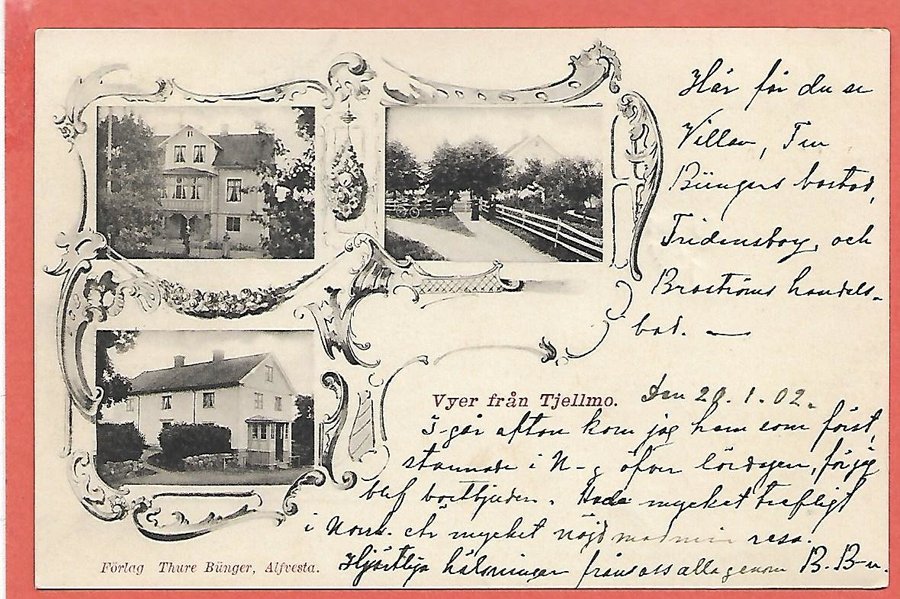 Här får du se
Villan, Tru
Büngers bostad,
Fridensborg, och
Broströms handels-
bod. —
Vyer från Tjellmo.
Den 20.1.02.
I går afton kom jag hem som först,
stannade i N-g öfver lördagen, för jag
blef bortbjuden. Hade mycket trefligt
i Norrk. är mycket nöjd med min resa.
Hjärtliga hälsningar från oss alla genom B. B-n.
Förlag Thure Bünger, Alfvesta.